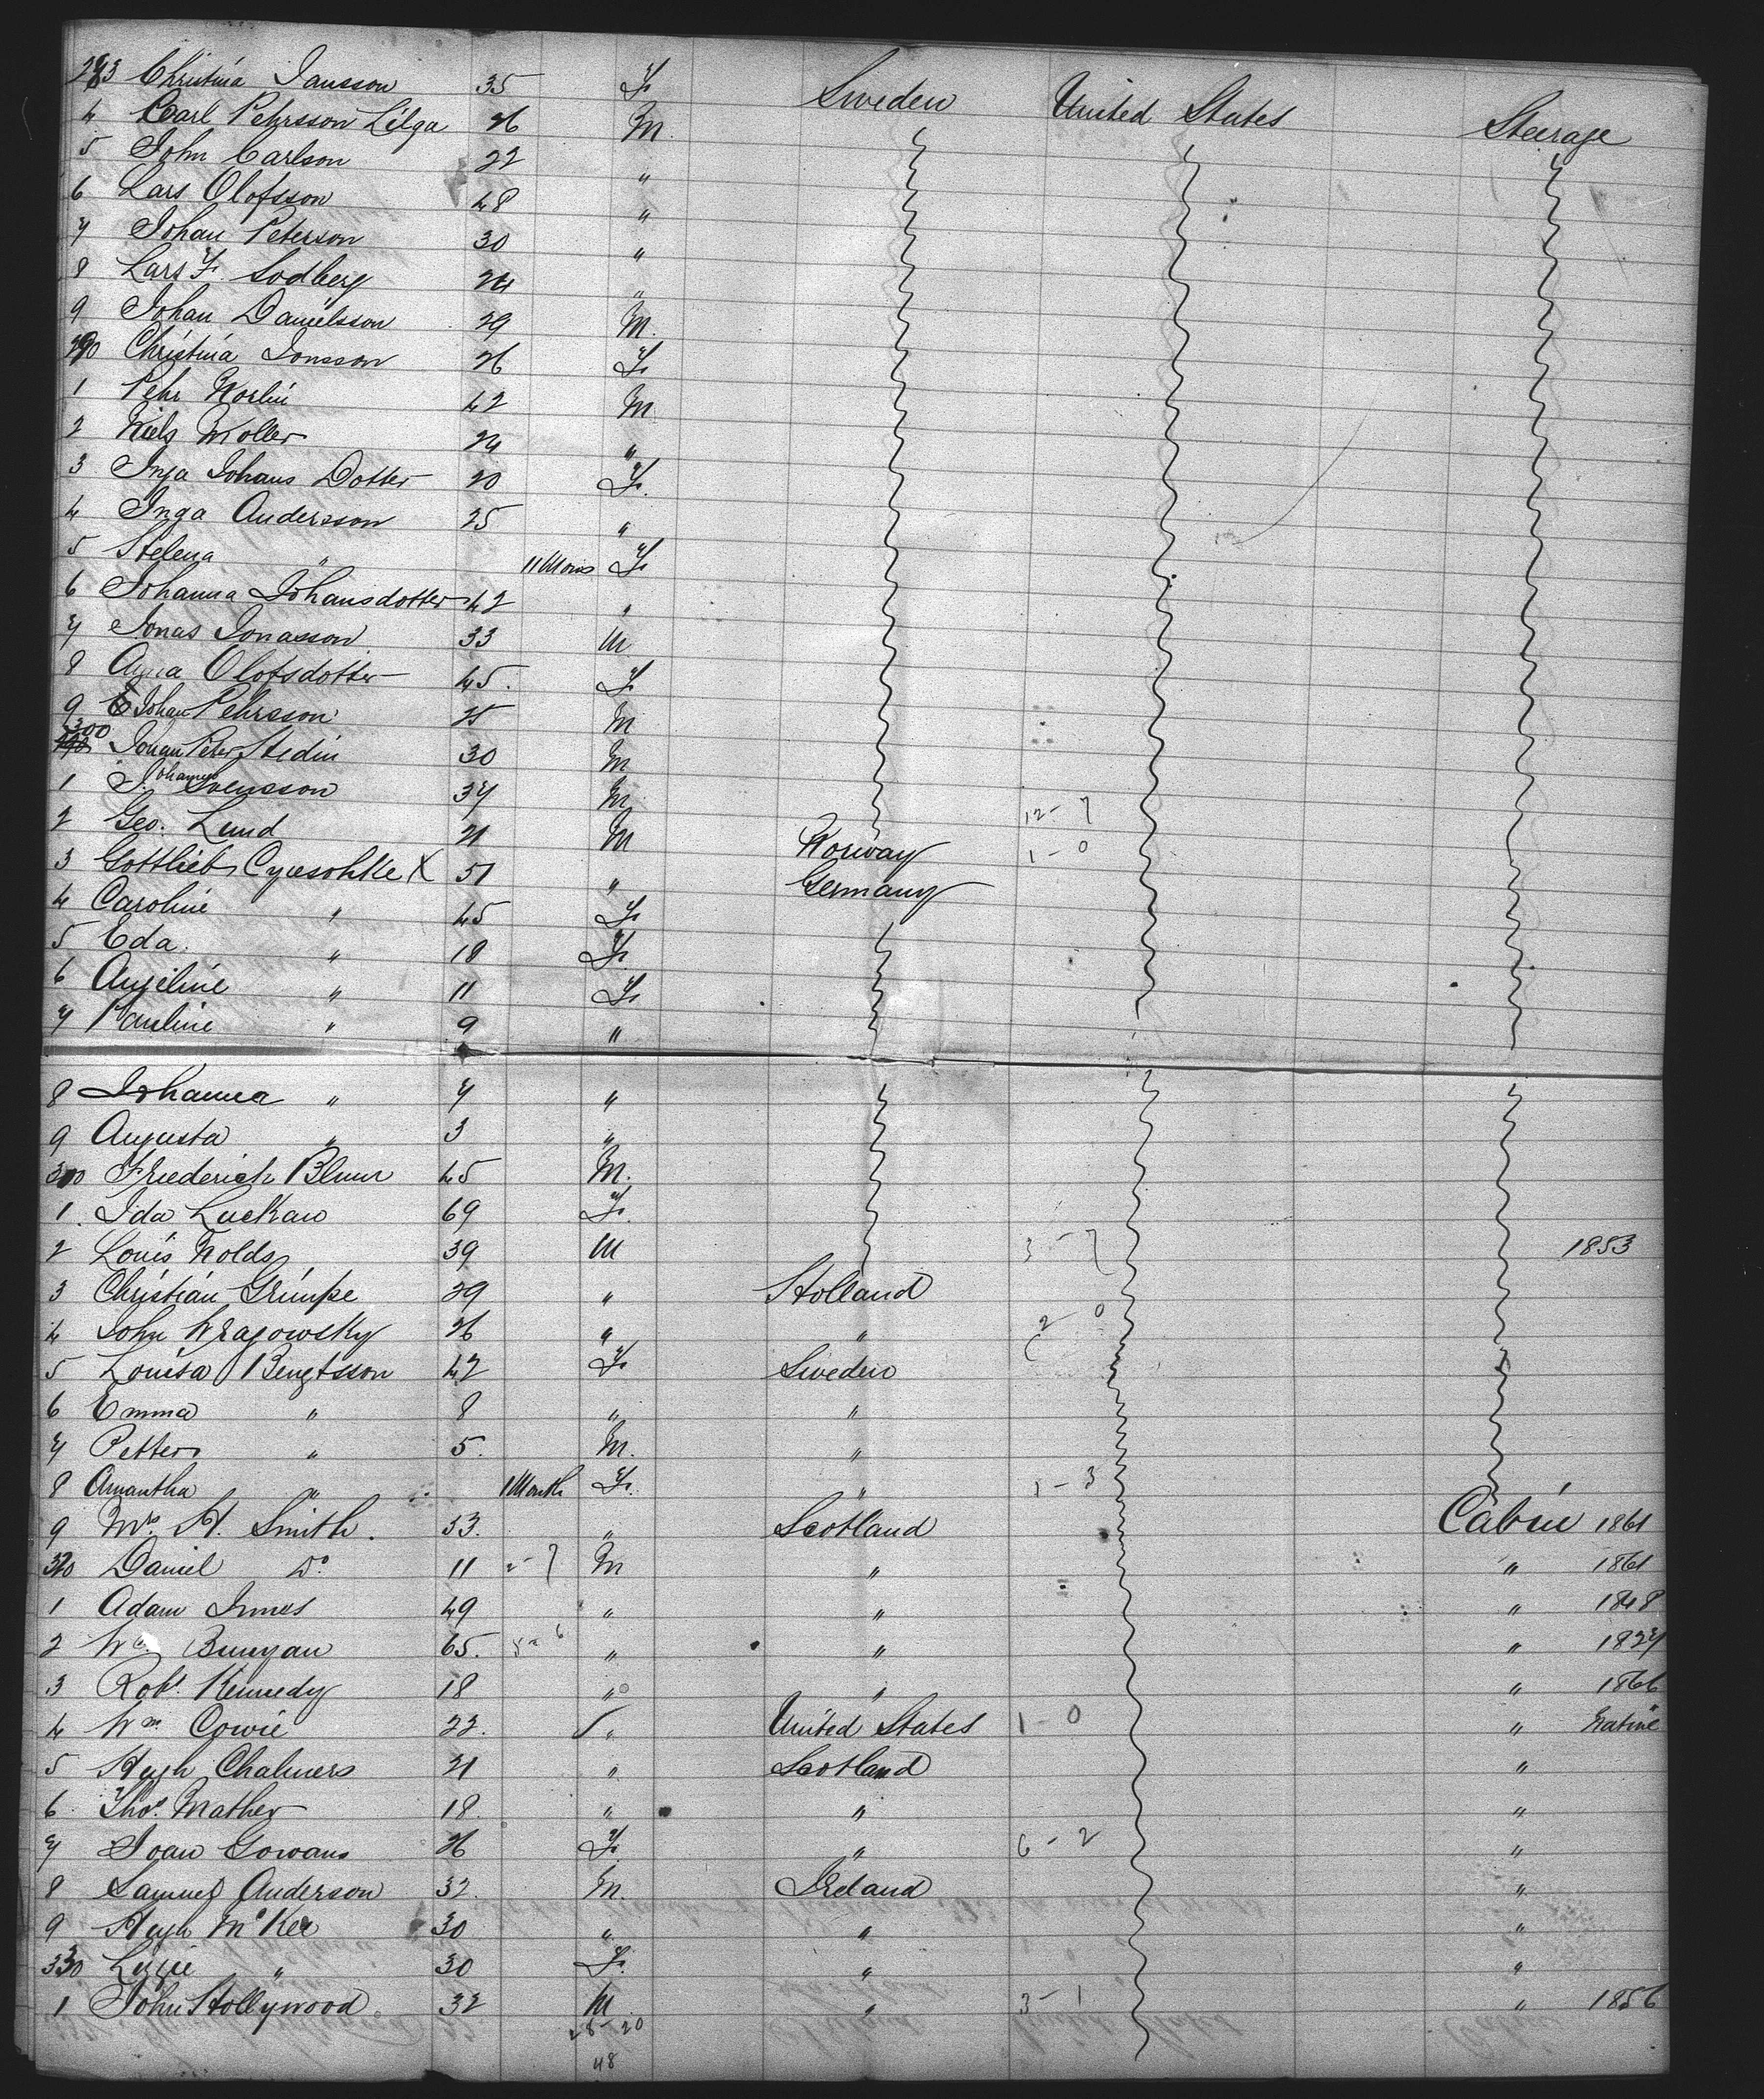 283 Christina Jansson 35 F Sweden United States Steerage
4 Carl Pehrsson Lilga 26 M
5 John Carlson 22 "
6 Lars Olofsson 48 "
7 Johan Peterson 30 "
8 Lars F. Sodberg 24 "
9 Johan Danielsson 29 M.
290 Christina Jonsson 26 F
1 Pehr Norlin 42 M
2 Niels Moller 24 "
3 Inga Johans Dotter 20 F.
4 Inga Andersson 25 "
5 Helena " 11 Mons F
6 Johanna Johansdotter 42 "
7 Jonas Jonasson 33 M
8 Anna Olofsdotter 45. F
9 Johan Pehrsson 25 M
300 Johan Peter Hedin 30 M
1 Johannes Svensson 37 M 12-7
2 Geo. Lund 21 M Norway 1-0
3 Gottlieb X 51 " Germany
4 Caroline " 45 F
5 Eda. " 18 F
6 Angeline " 11 F
7 Pauline " 9 "
8 Johanna " 7 "
9 Augusta " 3 "
310 Friederich Blum 45 M.
1. Ida Luckau 69 F.
2 Louis Nolds 39 M 3-7 1853
3 Christian Grimpe 29 " Holland
4 John Wragowsky 26 " " 2-0
5 Louisa Bengtsson 42 F Sweden
6 Emma " 8 " "
7 Petter " 5. M. "
8 Amantha " 1 Month F. " 1-3
9 Mrs. H. Smith. 33. " Scotland Cabin 1861
320 Daniel Do. 11 2-7 M " " 1861
1 Adam Innes 49 " " " 1848
2 Wm. Bunyan 65. " " " 1827
3 Robt. Kennedy 18 " " " 1866
4 Wm. Cowie 22. " United States 1-0 " Native
5 Hugh Chalmers 21 " Scotland "
6. Thos. Mather 18. " " "
7 Joan Gowans 26 F. " 6-2 "
8 Samuel Anderson 32. M. Ireland "
9 Hugh McKee 30 " " "
330 Lizzie " 30 F. " "
1 John Hollywood 32 M " 3-1 " 1856
28-20
48